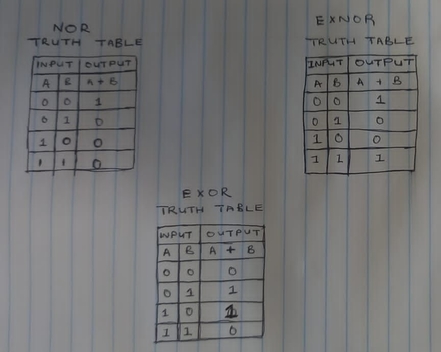 NOR
TRUTH TABLE
INPUT OUTPUT
A B A + B
0 0 1
0 1 0
1 0 0
1 1 0
EXNOR
TRUTH TABLE
INPUT OUTPUT
A B A + B
0 0 1
0 1 0
1 0 0
1 1 1
EXOR
TRUTH TABLE
INPUT OUTPUT
A B A + B
0 0 0
0 1 1
1 0 1
1 1 0